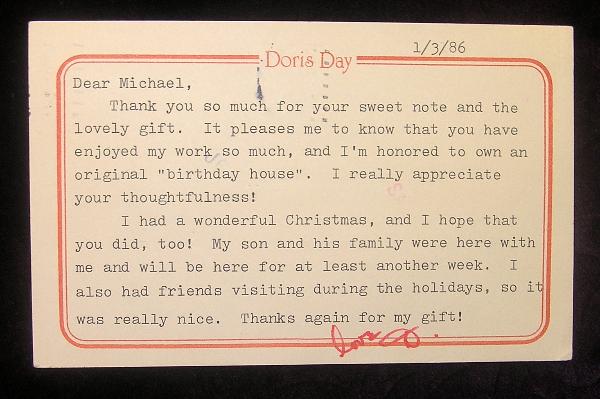 1/3/86
Doris Day
Dear Michael,
Thank you so much for your sweet note and the
lovely gift. It pleases me to know that you have
enjoyed my work so much, and I'm honored to own an
original "birthday house". I really appreciate
your thoughtfulness!
I had a wonderful Christmas, and I hope that
you did, too! My son and his family were here with
me and will be here for at least another week. I
also had friends visiting during the holidays, so it
was really nice. Thanks again for my gift!
love D.